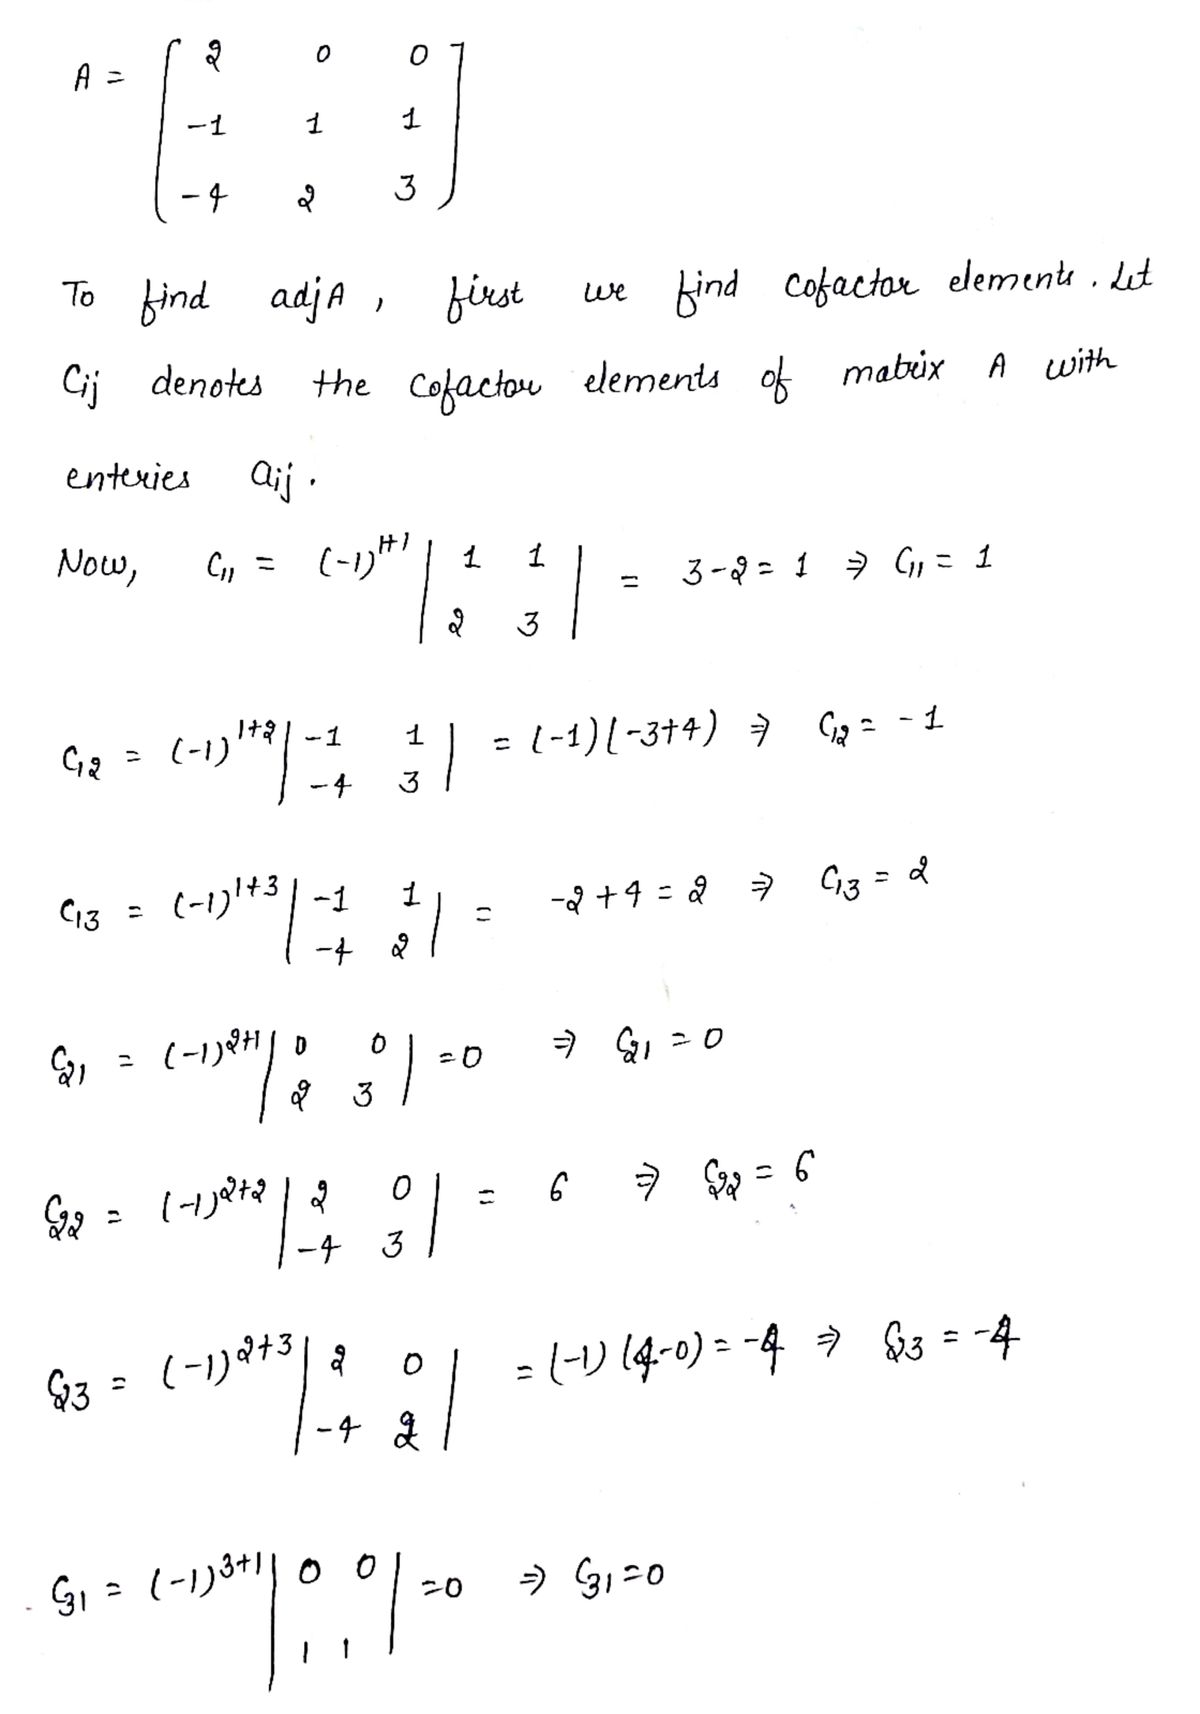 A = [ 2 0 0
-1 1 1
-4 2 3 ]
To find adjA , first we find cofactor elements. Let
Cij denotes the cofactor elements of matrix A with
enteries aij.
Now, C₁₁ = (-1)¹⁺¹ | 1 1 | = 3-2 = 1 ⇒ C₁₁ = 1
2 3
C₁₂ = (-1)¹⁺² | -1 1 | = (-1)(-3+4) ⇒ C₁₂ = -1
-4 3
C₁₃ = (-1)¹⁺³ | -1 1 | = -2+4 = 2 ⇒ C₁₃ = 2
-4 2
C₂₁ = (-1)²⁺¹ | 0 0 | =0 ⇒ C₂₁ = 0
2 3
C₂₂ = (-1)²⁺² | 2 0 | = 6 ⇒ C₂₂ = 6
-4 3
C₂₃ = (-1)²⁺³ | 2 0 | = (-1) (4-0) = -4 ⇒ C₂₃ = -4
-4 2
C₃₁ = (-1)³⁺¹ | 0 0 | =0 ⇒ C₃₁ =0
1 1